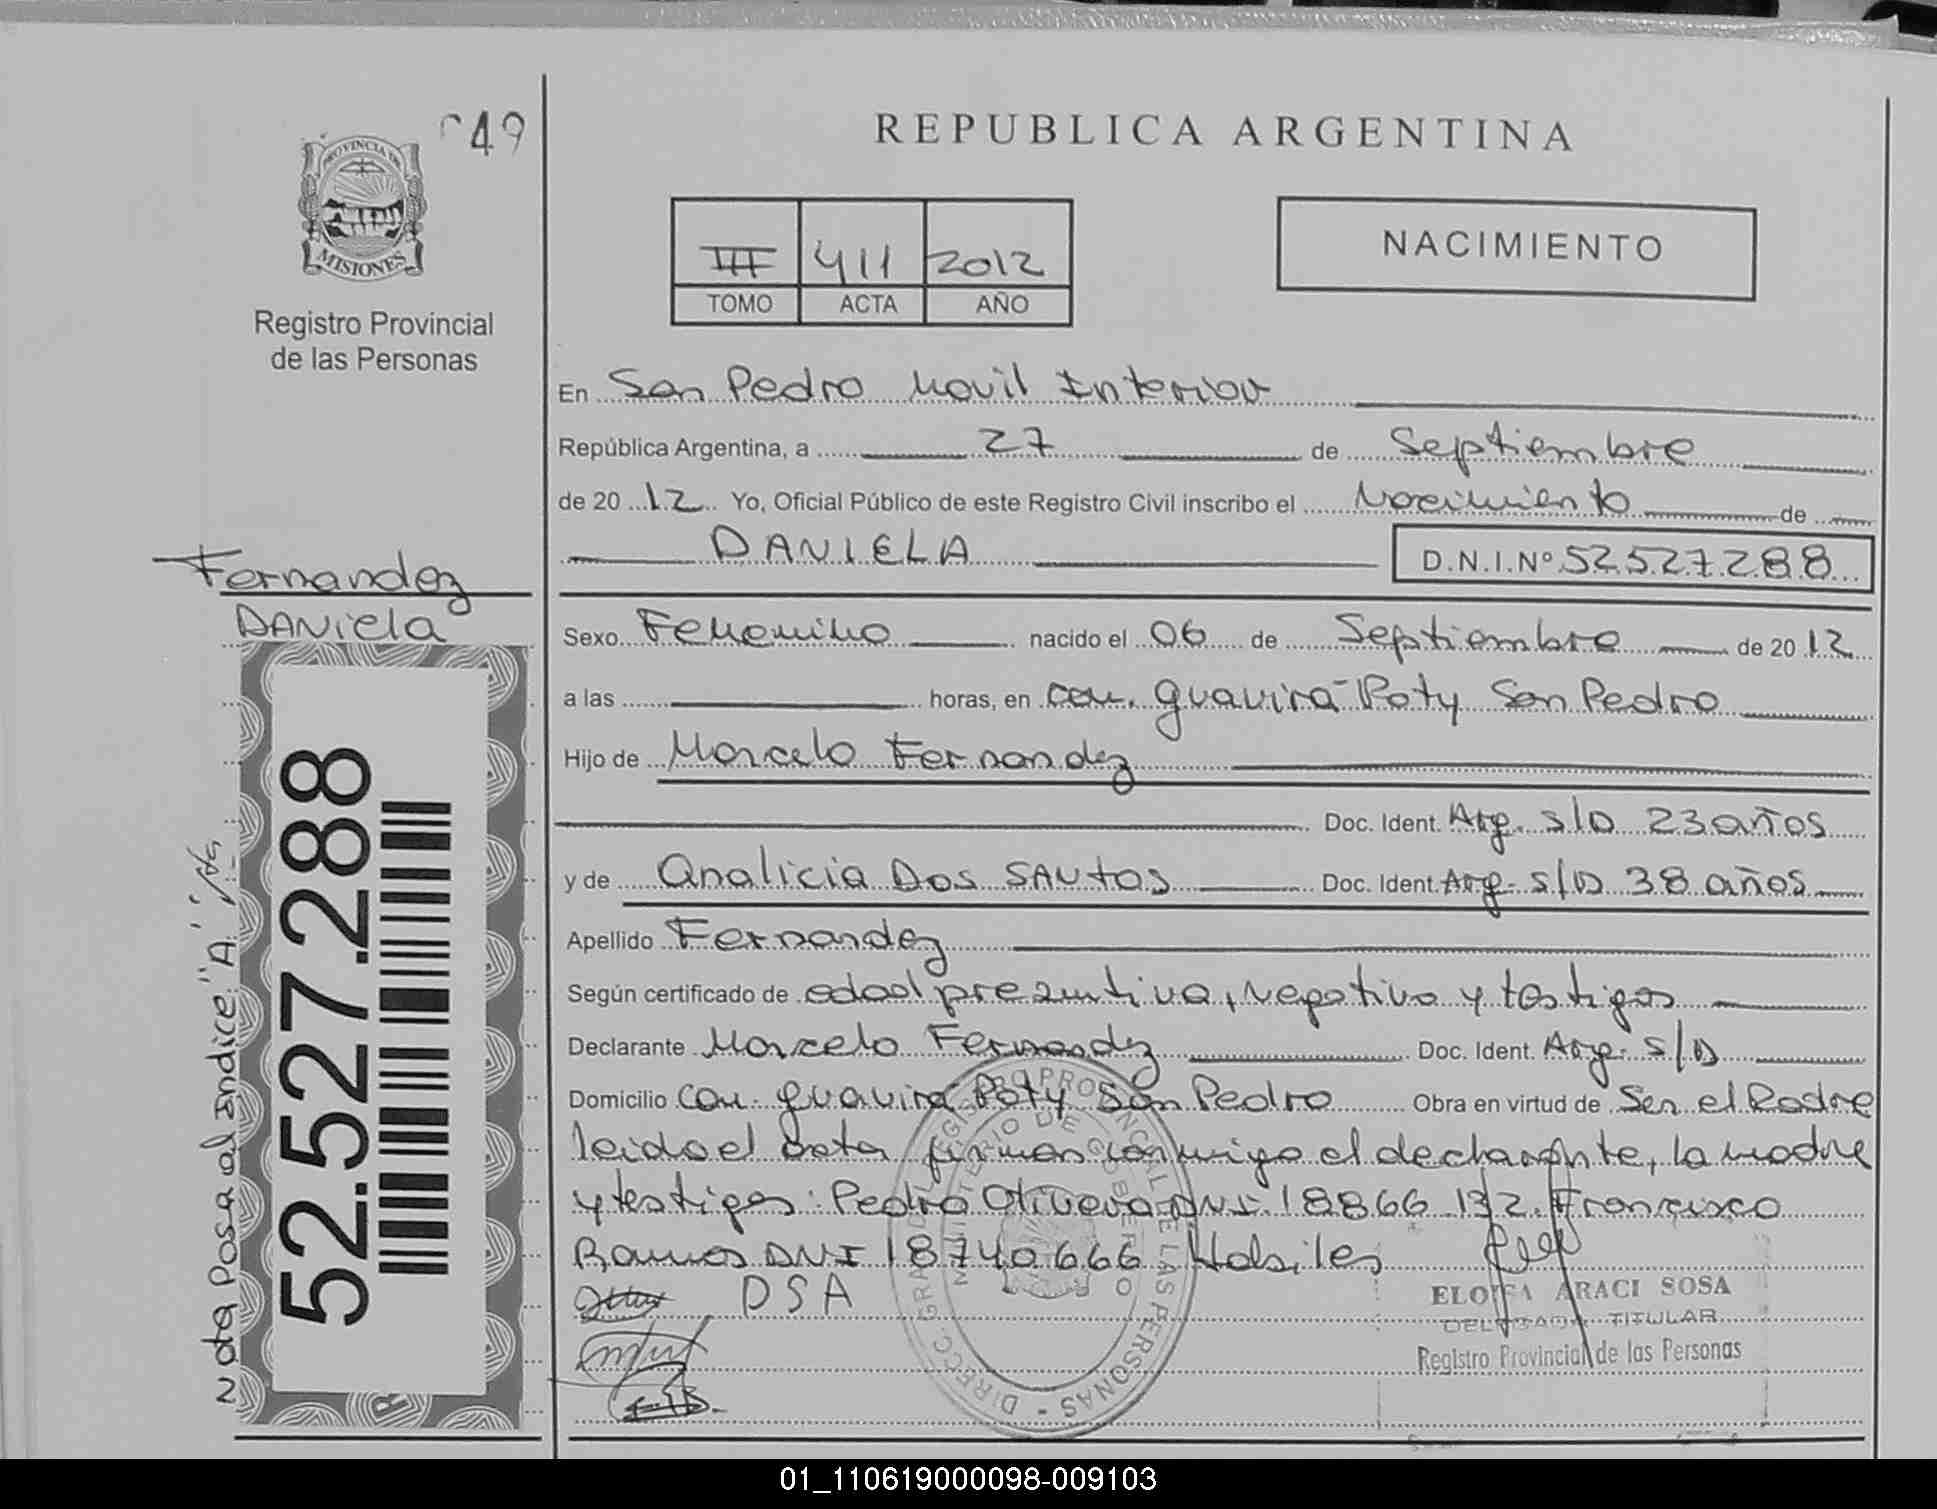 49
PROVINCIA DE
MISIONES
Registro Provincial
de las Personas
REPUBLICA ARGENTINA
III 411 2012
TOMO ACTA AÑO
NACIMIENTO
En San Pedro Movil Interior
República Argentina, a 27 de Septiembre
de 2012 Yo, Oficial Público de este Registro Civil inscribo el Nacimiento de
DANIELA D.N.I.Nº 52.527.288
Fernandez
DANiela
Sexo Femenino nacido el 06 de Septiembre de 2012
a las horas, en com. guavira Poty San Pedro
Hijo de Marcelo Fernandez
Doc. Ident. Arg. s/D 23 años
y de Analicia Dos SANtos Doc. Ident. Arg. s/D 38 años
Apellido Fernandez
Según certificado de edad presuntiva, negativa y testigos
Declarante Marcelo Fernandez Doc. Ident. Arg. s/D
Domicilio com. guavira Poty San Pedro Obra en virtud de Ser el Padre
leida el acta firman conmigo el declarante, la madre
y testigos: Pedro Olivera DNI 18866132 Francisco
Ramos DNI 18740666 Habiles
DSA
ELOISA ARACI SOSA
DELEGADA TITULAR
Registro Provincial de las Personas
DIRECC. GRAL. DEL REGISTRO PROVINCIAL DE LAS PERSONAS
MINISTERIO DE GOBIERNO
52.527.288
Nota Posa al Indice "A"
01_110619000098-009103